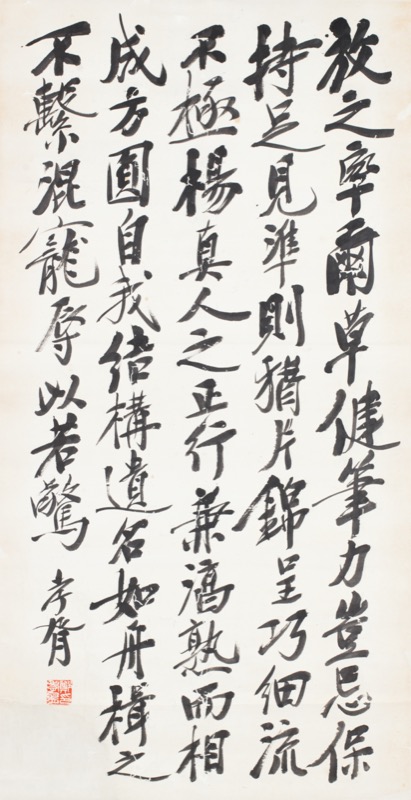 放之率爾草健筆力豈忌保
持足見準則猶片錦呈巧細流
不極楊真人之正行兼淳熟而相
成方圓自我結構遺名如舟楫之
不繫混寵辱以若驚
孝胥